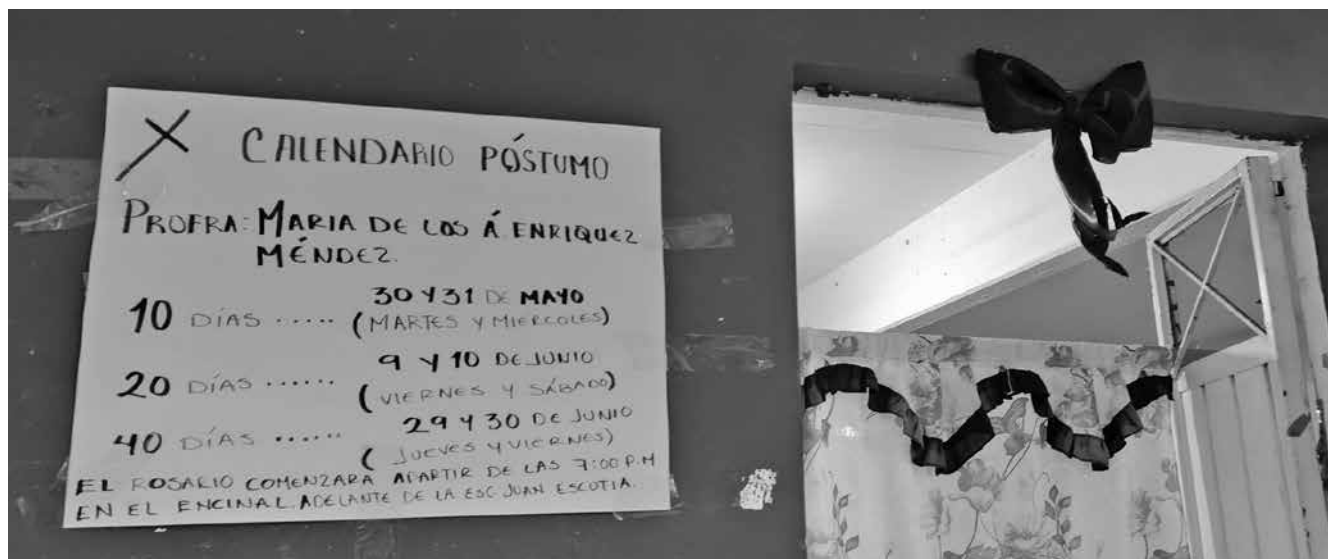 CALENDARIO PÓSTUMO
PROFRA: MARIA DE LOS Á ENRIQUEZ
MÉNDEZ.
30 Y 31 DE MAYO
10 DÍAS ...... (MARTES Y MIERCOLES)
9 Y 10 DE JUNIO
20 DÍAS ...... (VIERNES Y SÁBADO)
29 Y 30 DE JUNIO
40 DÍAS ...... (JUEVES Y VIERNES)
EL ROSARIO COMENZARA APARTIR DE LAS 7:00 P.M
EN EL ENCINAL. ADELANTE DE LA ESC. JUAN ESCOTIA.